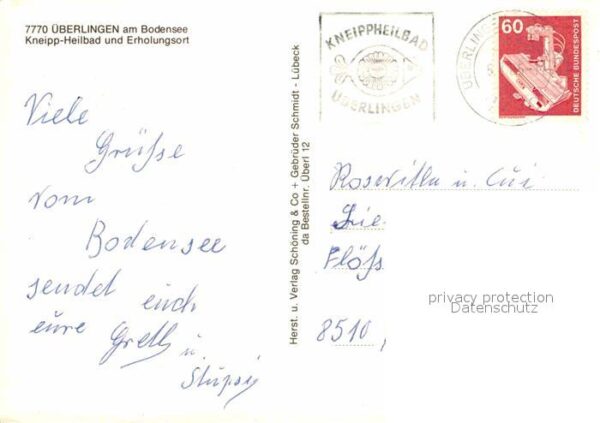 7770 ÜBERLINGEN am Bodensee
Kneipp-Heilbad und Erholungsort
Viele
Grüße
vom
Bodensee
sendet euch
eure Gretl u.
Herst. u. Verlag Schöning & Co + Gebrüder Schmidt - Lübeck
da Bestellnr. Überl 12
KNEIPPHEILBAD
ÜBERLINGEN
60
DEUTSCHE BUNDESPOST
Roswitha u.
8510,
privacy protection
Datenschutz